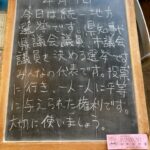 今日は統一地方
選挙です。県知事
県議会議員、市議会
議員を決める選挙です。
みんなの代表です。投票
に行き、一人一人に平等
に与えられた権利です。
大切に使いましょう。